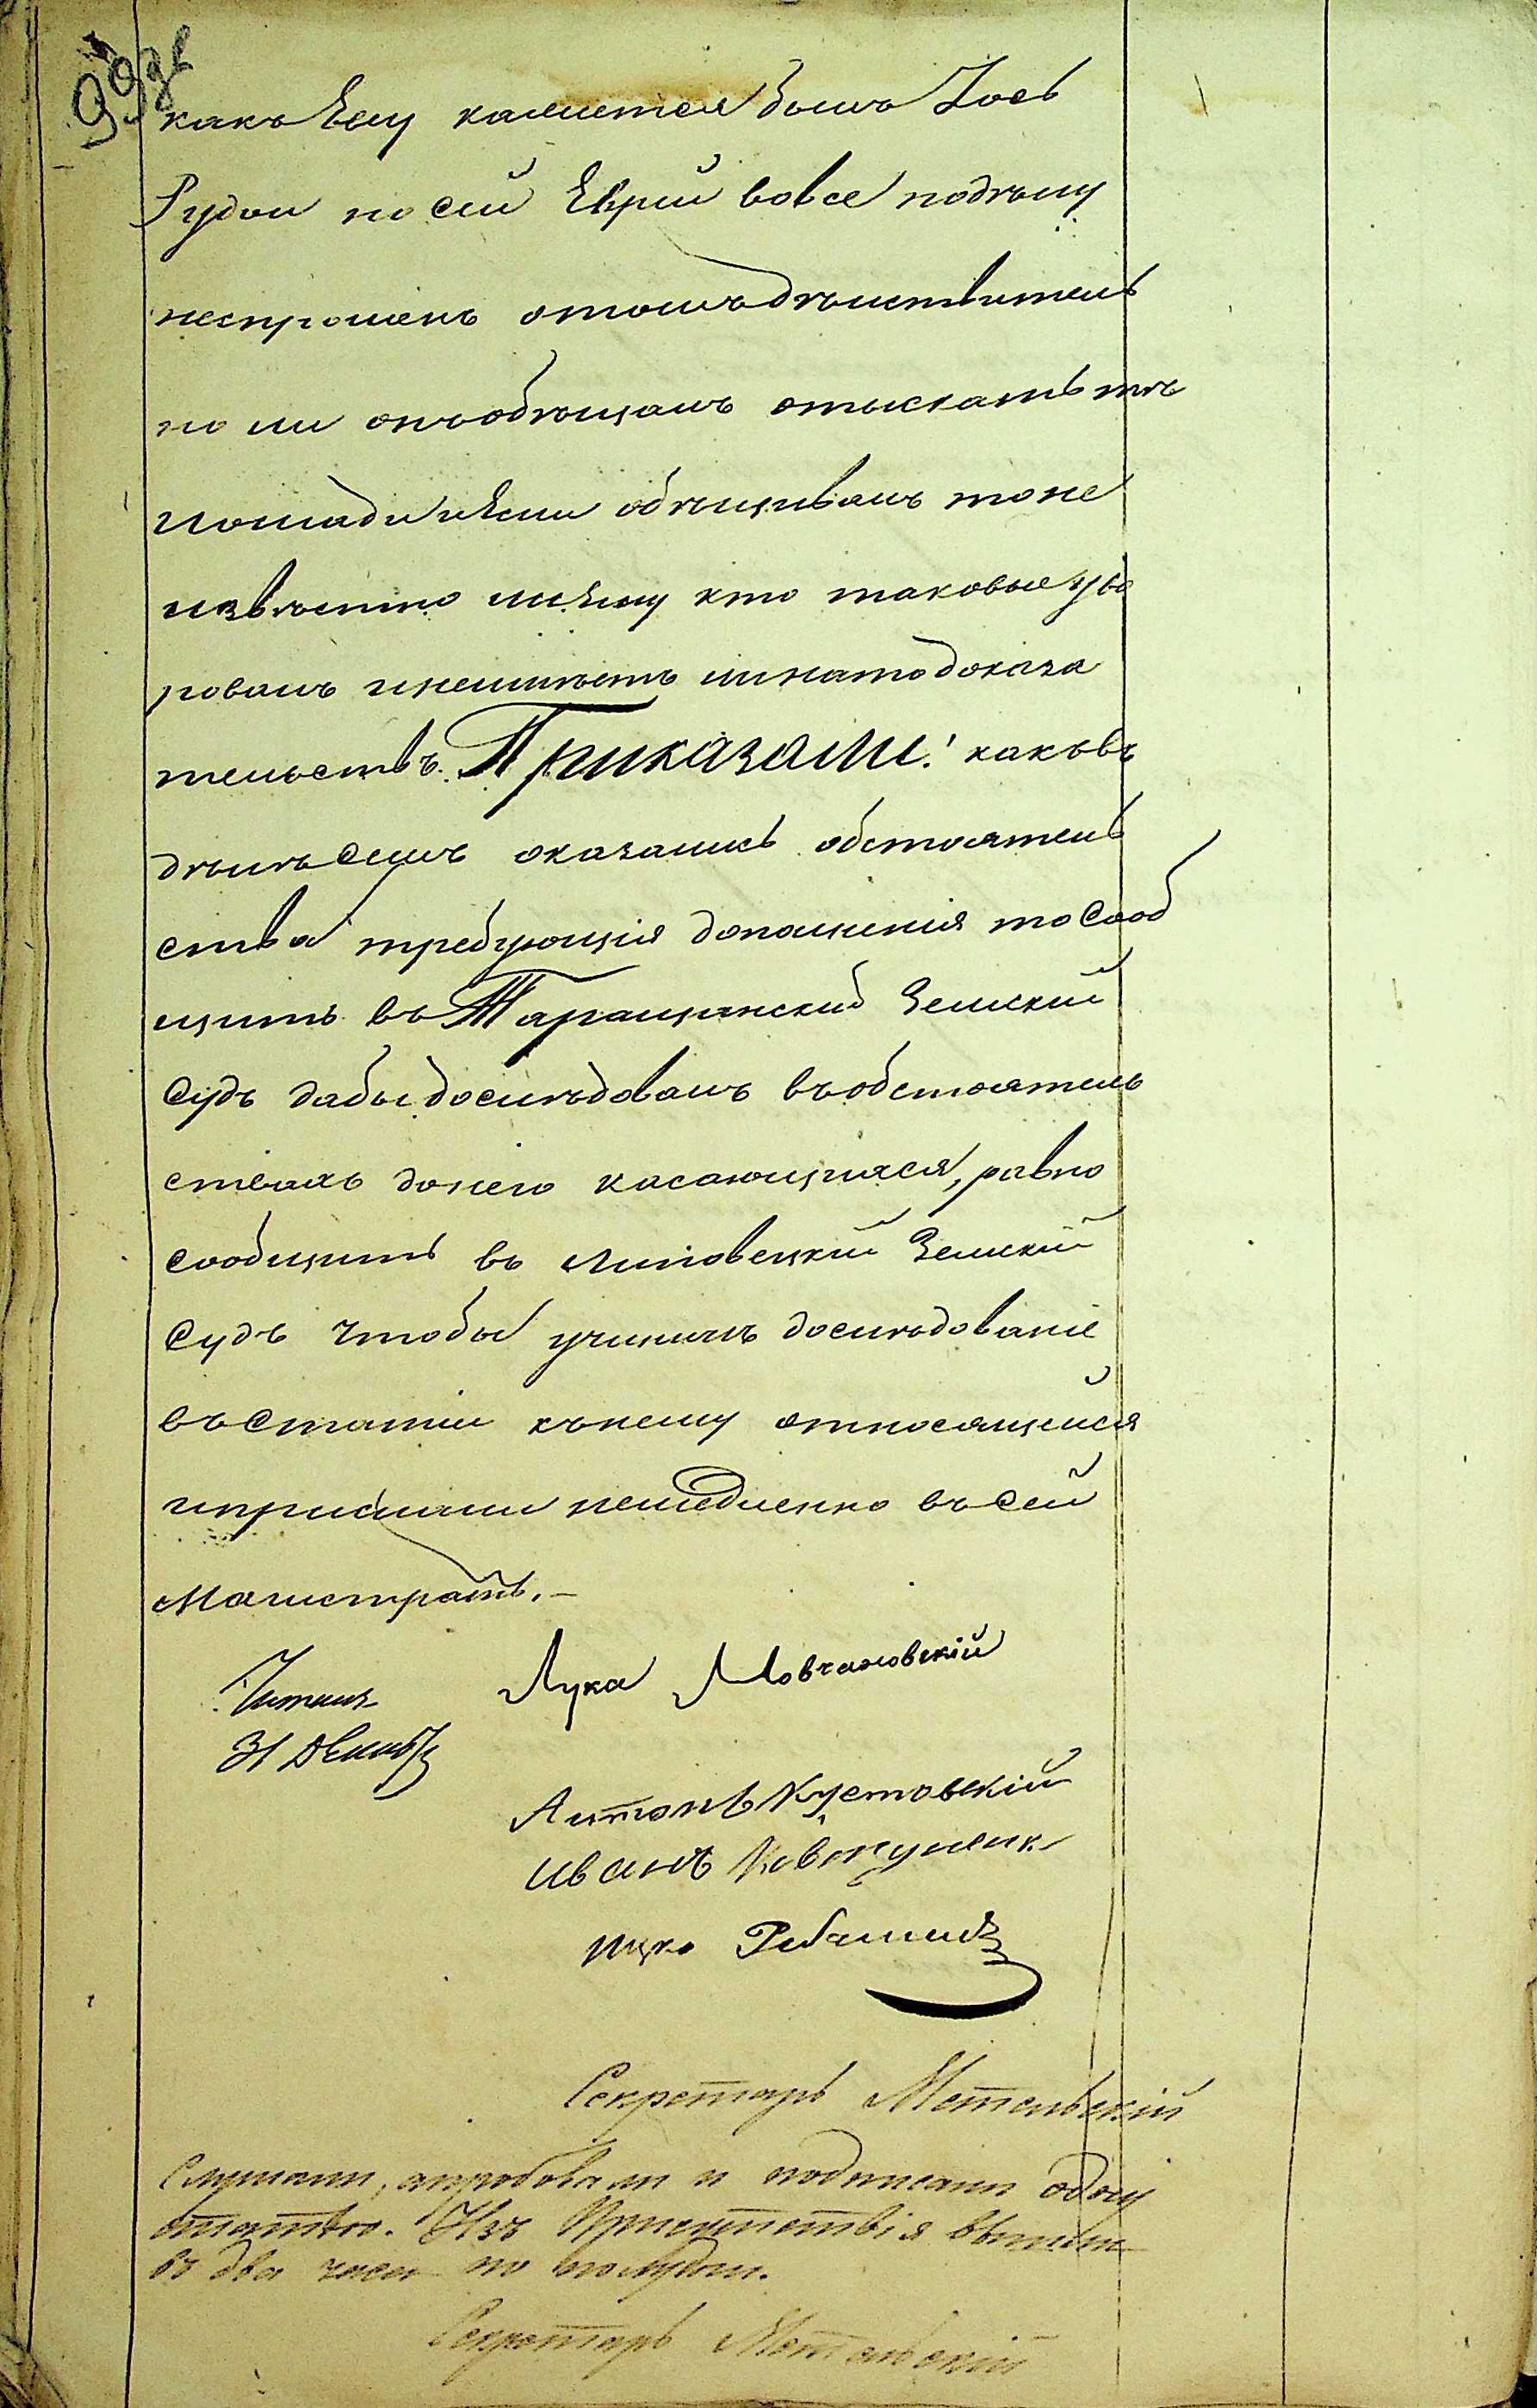 какъ Ему кажется былъ Іось
Рудой но сей Еврей вовсе подѣлу
неспрошенъ отомъ дѣйствитель
но ли онъ обѣщалъ отыскать тѣ
лошади иЕсли обѣщивалъ тоне
извѣстно ли Ему кто таковые убо
ровалъ инеимѣетъ ли нато доказа
тельствъ. Приказали: какъ въ
дѣлѣ семъ оказались обстоятель
ства требующія дополненія то Сооб
щить въ Таращанскій Земскій
Судъ дабы дослѣдовалъ въ обстоятель
ствахъ донего касающихся, равно
сообщить въ Липовецкій Земскій
Судъ чтобы учинилъ дослѣдованіе
въ Статіи кънему относящейся
иприслали немедленно въ Сей
Магистратъ. —
Читалъ
Лука Мовчановскій
31 Декабр
Антонъ Кустовскій
Иванъ
Ицко
Секретарь Метельскій
Слушали, апробовали и подписали одну
статью. Изъ Присутствія вышли
въ два часа по полудни.
Секретарь Метельскій